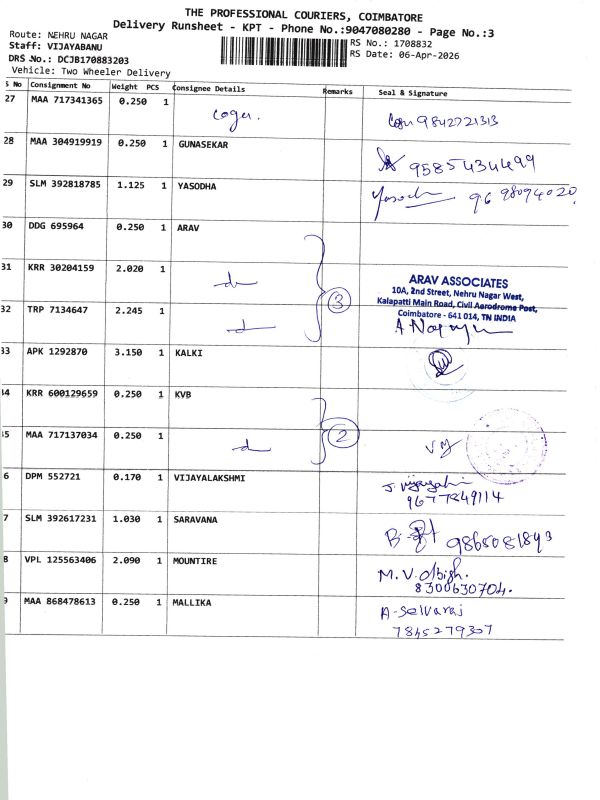 THE PROFESSIONAL COURIERS, COIMBATORE
Delivery Runsheet - KPT - Phone No.:9047080280 - Page No.:3
Route: NEHRU NAGAR
Staff: VIJAYABANU
DRS No.: DCJB170883203
Vehicle: Two Wheeler Delivery
RS No.: 1708832
RS Date: 06-Apr-2026
S No Consignment No Weight PCS Consignee Details Remarks Seal & Signature
27 MAA 717341365 0.250 1 9842721313
28 MAA 304919919 0.250 1 GUNASEKAR 9585434499
29 SLM 392818785 1.125 1 YASODHA Yasodh 9698094020
30 DDG 695964 0.250 1 ARAV
31 KRR 30204159 2.020 1 3
ARAV ASSOCIATES
10A, 2nd Street, Nehru Nagar West,
Kalapatti Main Road, Civil Aerodrome Post,
Coimbatore - 641 014, TN INDIA
32 TRP 7134647 2.245 1
33 APK 1292870 3.150 1 KALKI
34 KRR 600129659 0.250 1 KVB
35 MAA 717137034 0.250 1 2
6 DPM 552721 0.170 1 VIJAYALAKSHMI
9677849114
7 SLM 392617231 1.030 1 SARAVANA 9865081893
8 VPL 125563406 2.090 1 MOUNTIRE M.V.
8300630704.
9 MAA 868478613 0.250 1 MALLIKA A-Selvaraj
7845279307